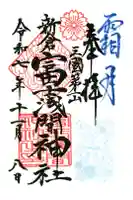 霜月
奉拝
三國第一山
新倉富士浅間神社
令和七年十一月八日